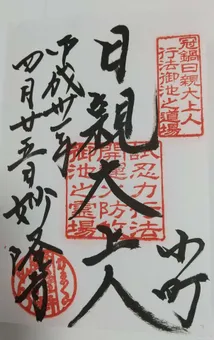 冠鍋日親大上人
行法御池之道場
小町
日親大上人
試忍力行法
御池之霊場
平成卅一年
四月廿五日妙隆寺